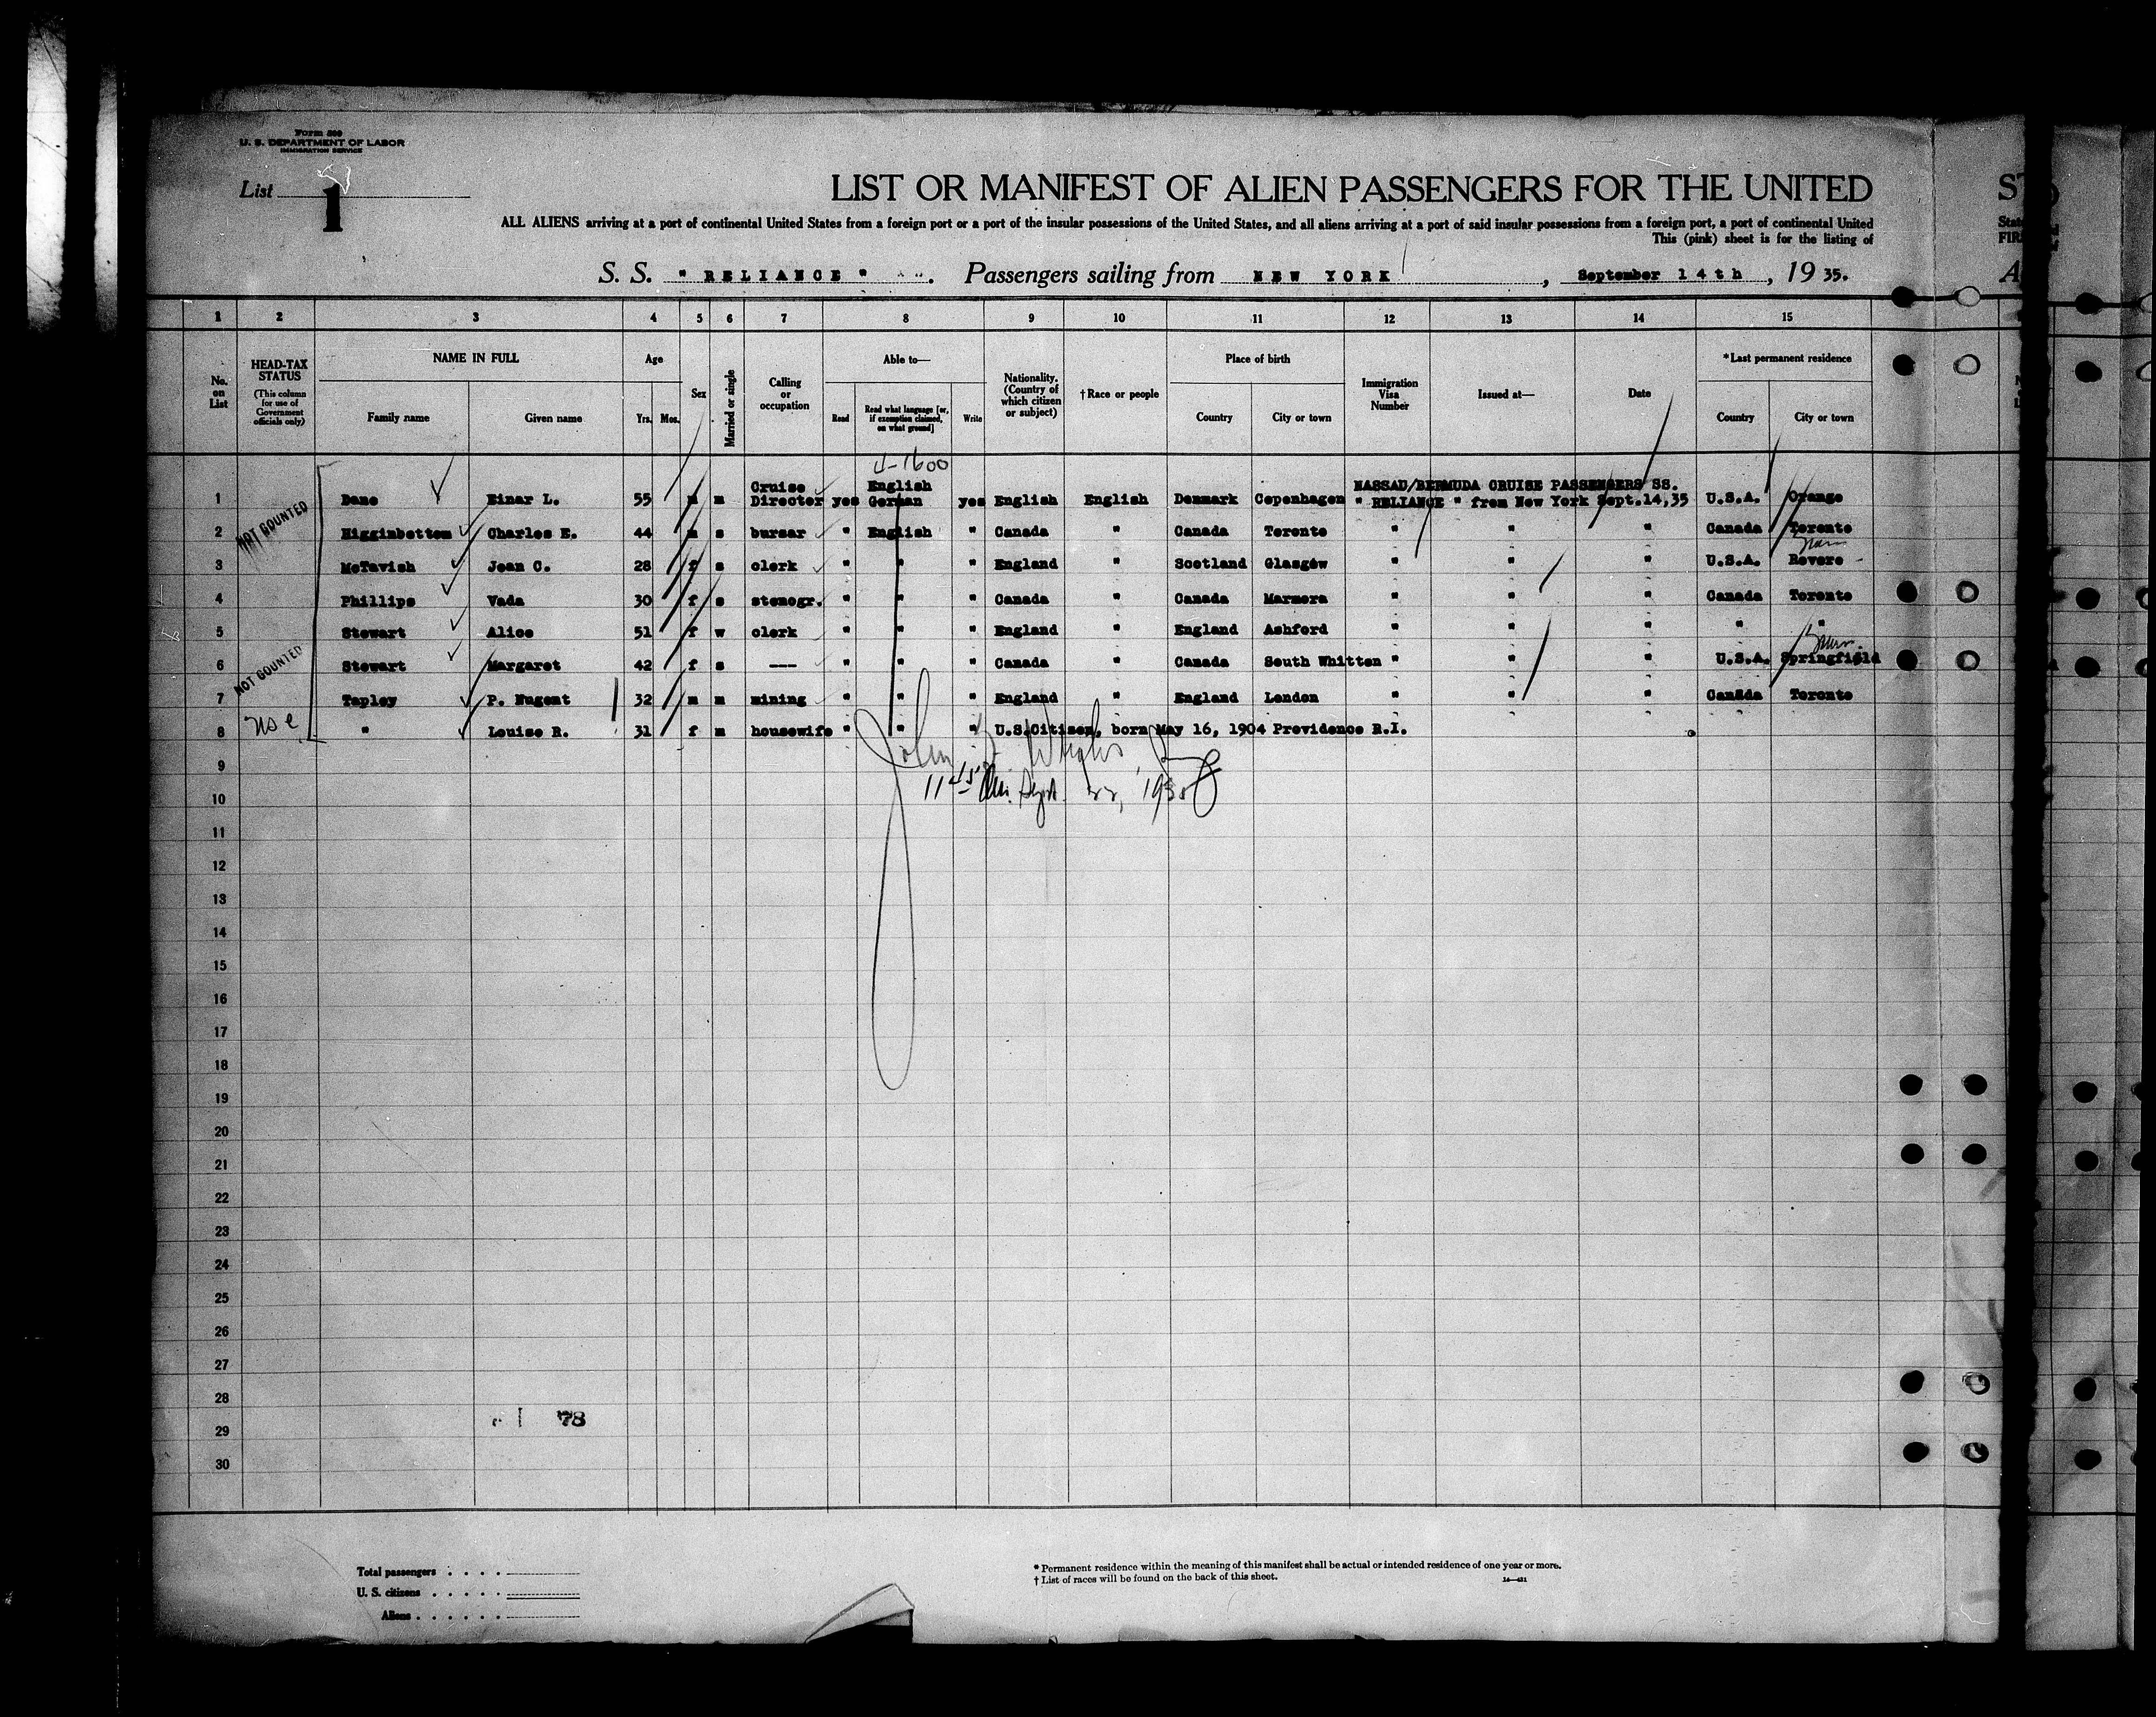 Form 500
U. S. DEPARTMENT OF LABOR
IMMIGRATION SERVICE
List 1
LIST OR MANIFEST OF ALIEN PASSENGERS FOR THE UNITED
ALL ALIENS arriving at a port of continental United States from a foreign port or a port of the insular possessions of the United States, and all aliens arriving at a port of said insular possessions from a foreign port, a port of continental United
This (pink) sheet is for the listing of
S. S. " RELIANCE ". Passengers sailing from NEW YORK, September 14th, 19 35.
1 2 3 4 5 6 7 8 9 10 11 12 13 14 15
No. on List
HEAD-TAX STATUS (This column for use of Government officials only)
NAME IN FULL Family name Given name
Age Yrs. Mos.
Sex
Married or single
Calling or occupation
Able to— Read Read what language [or, if exemption claimed, on what ground] Write
Nationality. (Country of which citizen or subject)
†Race or people
Place of birth Country City or town
Immigration Visa Number
Issued at—
Date
*Last permanent residence Country City or town
NOT COUNTED
1 Dane Einar L. 55 m m Cruise Director yes English German yes English English Denmark Copenhagen NASSAU/BERMUDA CRUISE PASSENGERS SS. " RELIANCE " from New York Sept.14,35 U.S.A. Orange
2 Higginbottom Charles E. 44 m s bursar " English " Canada " Canada Toronto " " " Canada Toronto
3 McTavish Jean C. 28 f s clerk " " " England " Scotland Glasgow " " " U.S.A. Revere
4 Phillips Vada 30 f s stenogr. " " " Canada " Canada Marmora " " " Canada Toronto
5 Stewart Alice 51 f w clerk " " " England " England Ashford " " " " "
NOT COUNTED
6 Stewart Margaret 42 f s --- " " " Canada " Canada South Whitten " " " U.S.A. Springfield
7 Tapley P. Nugent 32 m m mining " " " England " England London " " " Canada Toronto
8 " Louise R. 31 f m housewife " " " U.S.Citizen, born May 16, 1904 Providence R.I.
9
10
11
12
13
14
15
16
17
18
19
20
21
22
23
24
25
26
27
28
78
29
30
Total passengers
U. S. citizens
Aliens
* Permanent residence within the meaning of this manifest shall be actual or intended residence of one year or more.
† List of races will be found on the back of this sheet.